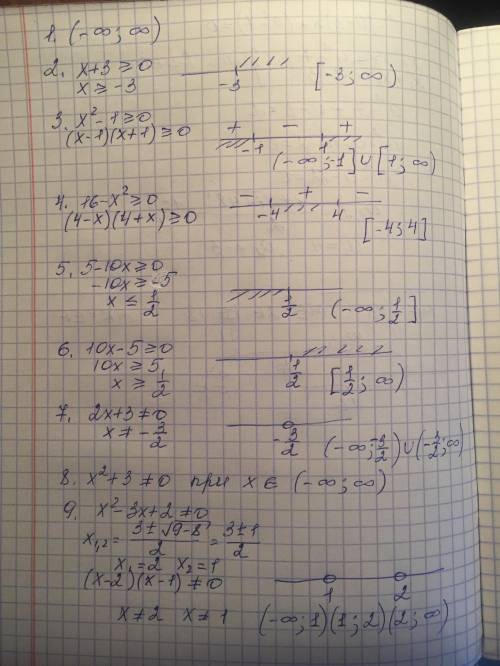 1. (-∞; ∞)
2. x+3 ≥ 0
x ≥ -3
-3
[-3; ∞)
3. x²-1 ≥ 0
(x-1)(x+1) ≥ 0
+ - +
-1 1
(-∞; -1] ∪ [1; ∞)
4. 16-x² ≥ 0
(4-x)(4+x) ≥ 0
- + -
-4 4
[-4; 4]
5. 5-10x ≥ 0
-10x ≥ -5
x ≤ 1/2
1/2
(-∞; 1/2]
6. 10x-5 ≥ 0
10x ≥ 5
x ≥ 1/2
1/2
[1/2; ∞)
7. 2x+3 ≠ 0
x ≠ -3/2
-3/2
(-∞; -3/2) ∪ (-3/2; ∞)
8. x²+3 ≠ 0 при x ∈ (-∞; ∞)
9. x²-3x+2 ≠ 0
x₁,₂ = (3±√(9-8))/2 = (3±1)/2
x₁=2 x₂=1
(x-2)(x-1) ≠ 0
1 2
x ≠ 2 x ≠ 1 (-∞; 1)(1; 2)(2; ∞)